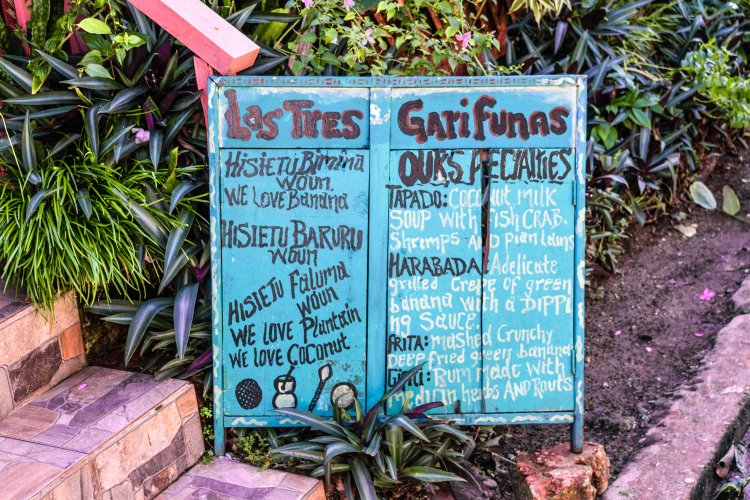 Las Tres Garifunas
HISIETU Bimina
WOUN
WE LOVE BANANA
HISIETU BARURU
WOUN
HISIETU FALUMA
WOUN
WE LOVE PLANTAIN
WE LOVE COCONUT
OUR SPECIALTIES
TAPADO: COCONUT MILK
SOUP WITH FISH CRAB,
Shrimps AND plantains
HARABADA: A delicate
grilled Crepe of green
banana with a DIPPI
NG SAUCE.
FRITA: mashed Crunchy
Deep fried green banana
Rum made with
herbs AND Roots